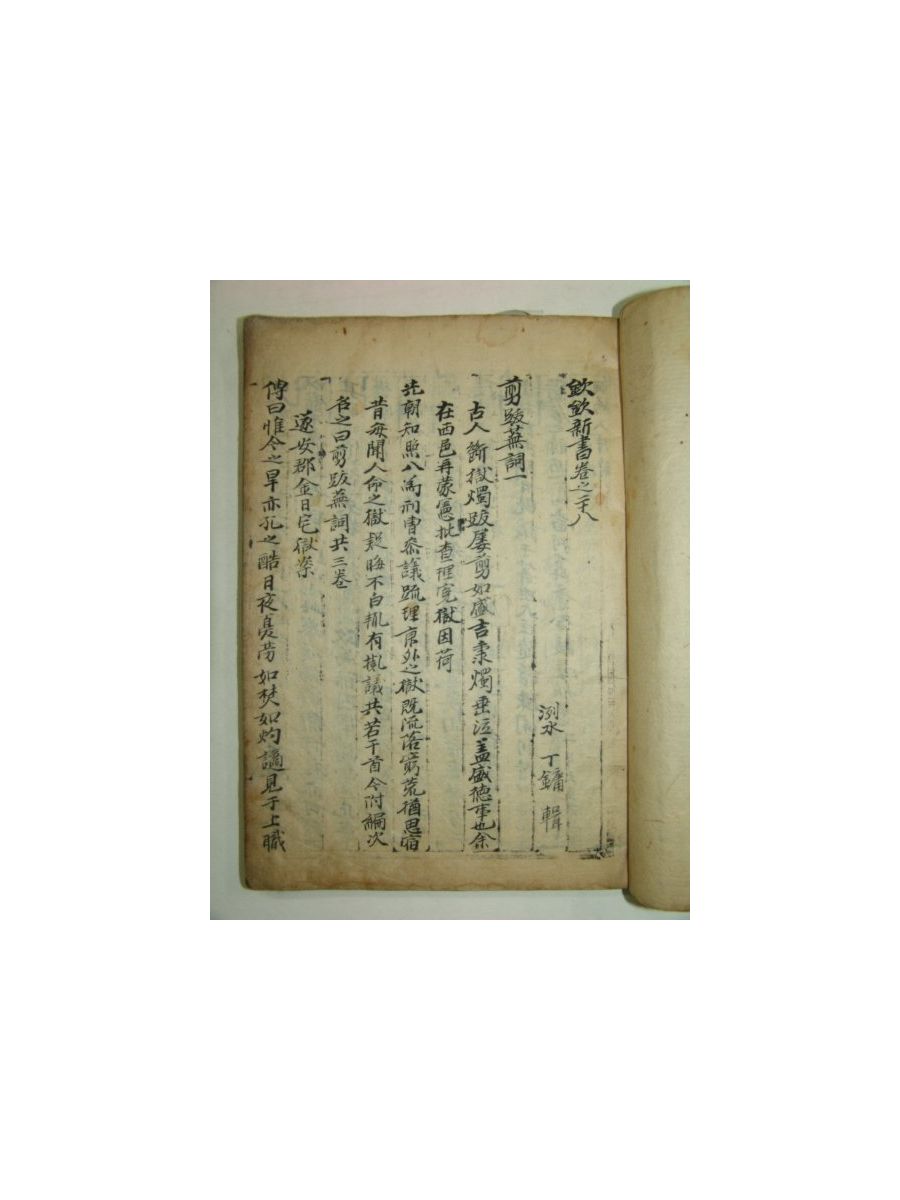 欽欽新書卷之二十八
洌水 丁鏞 輯
剪跋蕪詞一
古人斷獄燭跋屢剪如盛吉秉燭垂泣盖盛德事也余
在西邑再蒙憲批查理寃獄因荷
先朝知照入爲刑曺叅議䟽理京外之獄既流落窮荒猶思宿
昔每聞人命之獄疑晦不白輒有擬議共若干首今附編次
名之曰剪跋蕪詞共三卷
遂安郡金日宅獄案
傳曰惟今之旱亦孔之酷日夜憂勞如焚如灼謫見于上職